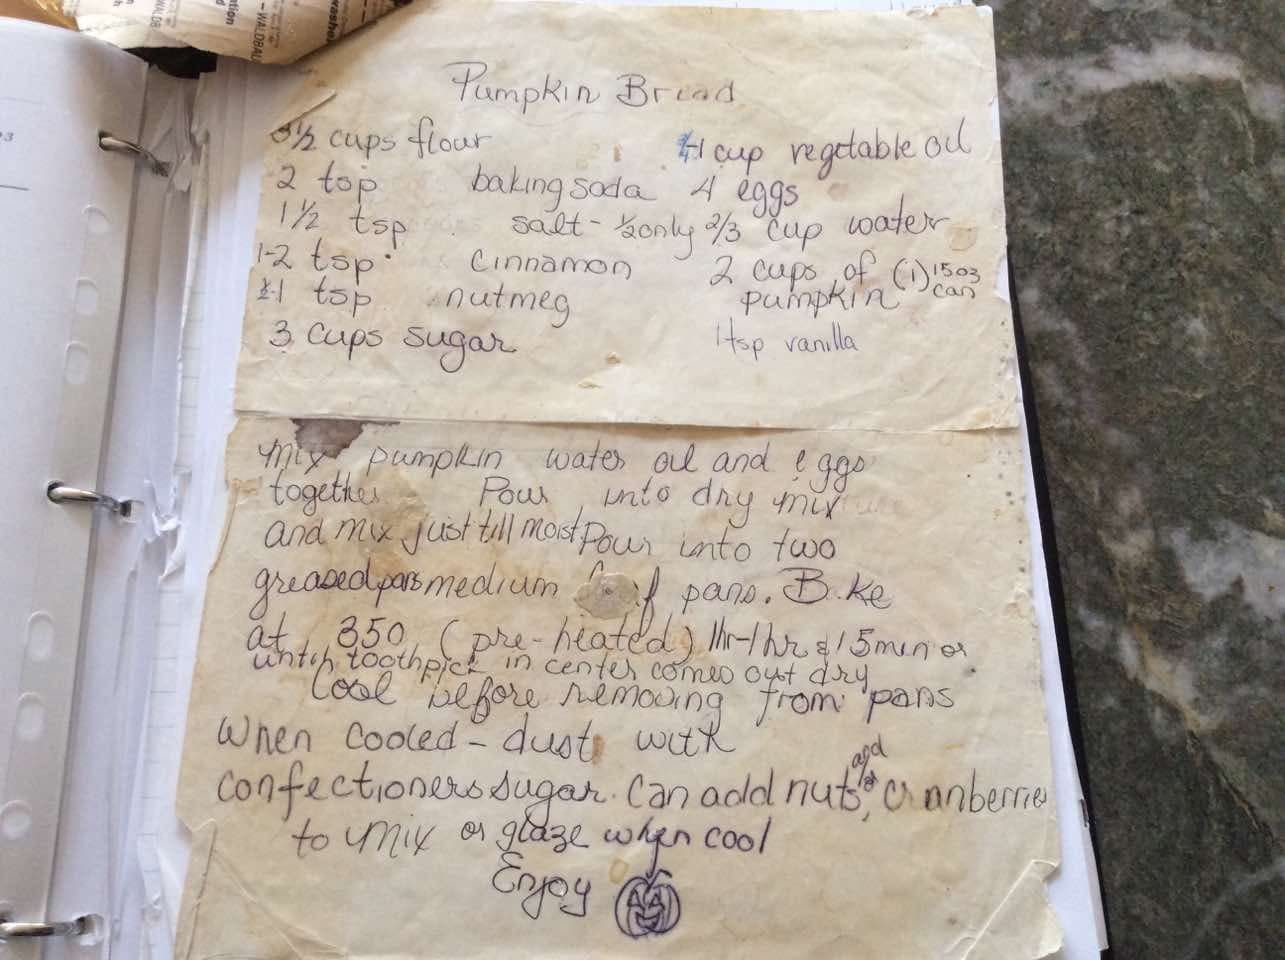 Pumpkin Bread
3 1/2 cups flour
2 tsp baking soda
1 1/2 tsp salt - 1/2 only
1-2 tsp cinnamon
1/2-1 tsp nutmeg
3 cups sugar
1 cup vegetable oil
4 eggs
2/3 cup water
2 cups of (1) 15 oz can
pumpkin
1 tsp vanilla
Mix pumpkin water oil and eggs
together Pour into dry mix
and mix just till moist Pour into two
greased pans medium loaf pans. Bake
at 350 (pre-heated) 1hr-1hr & 15 min or
until toothpick in center comes out dry
Cool before removing from pans
When cooled - dust with
confectioners sugar. Can add nuts and/or cranberries
to mix or glaze when cool
Enjoy